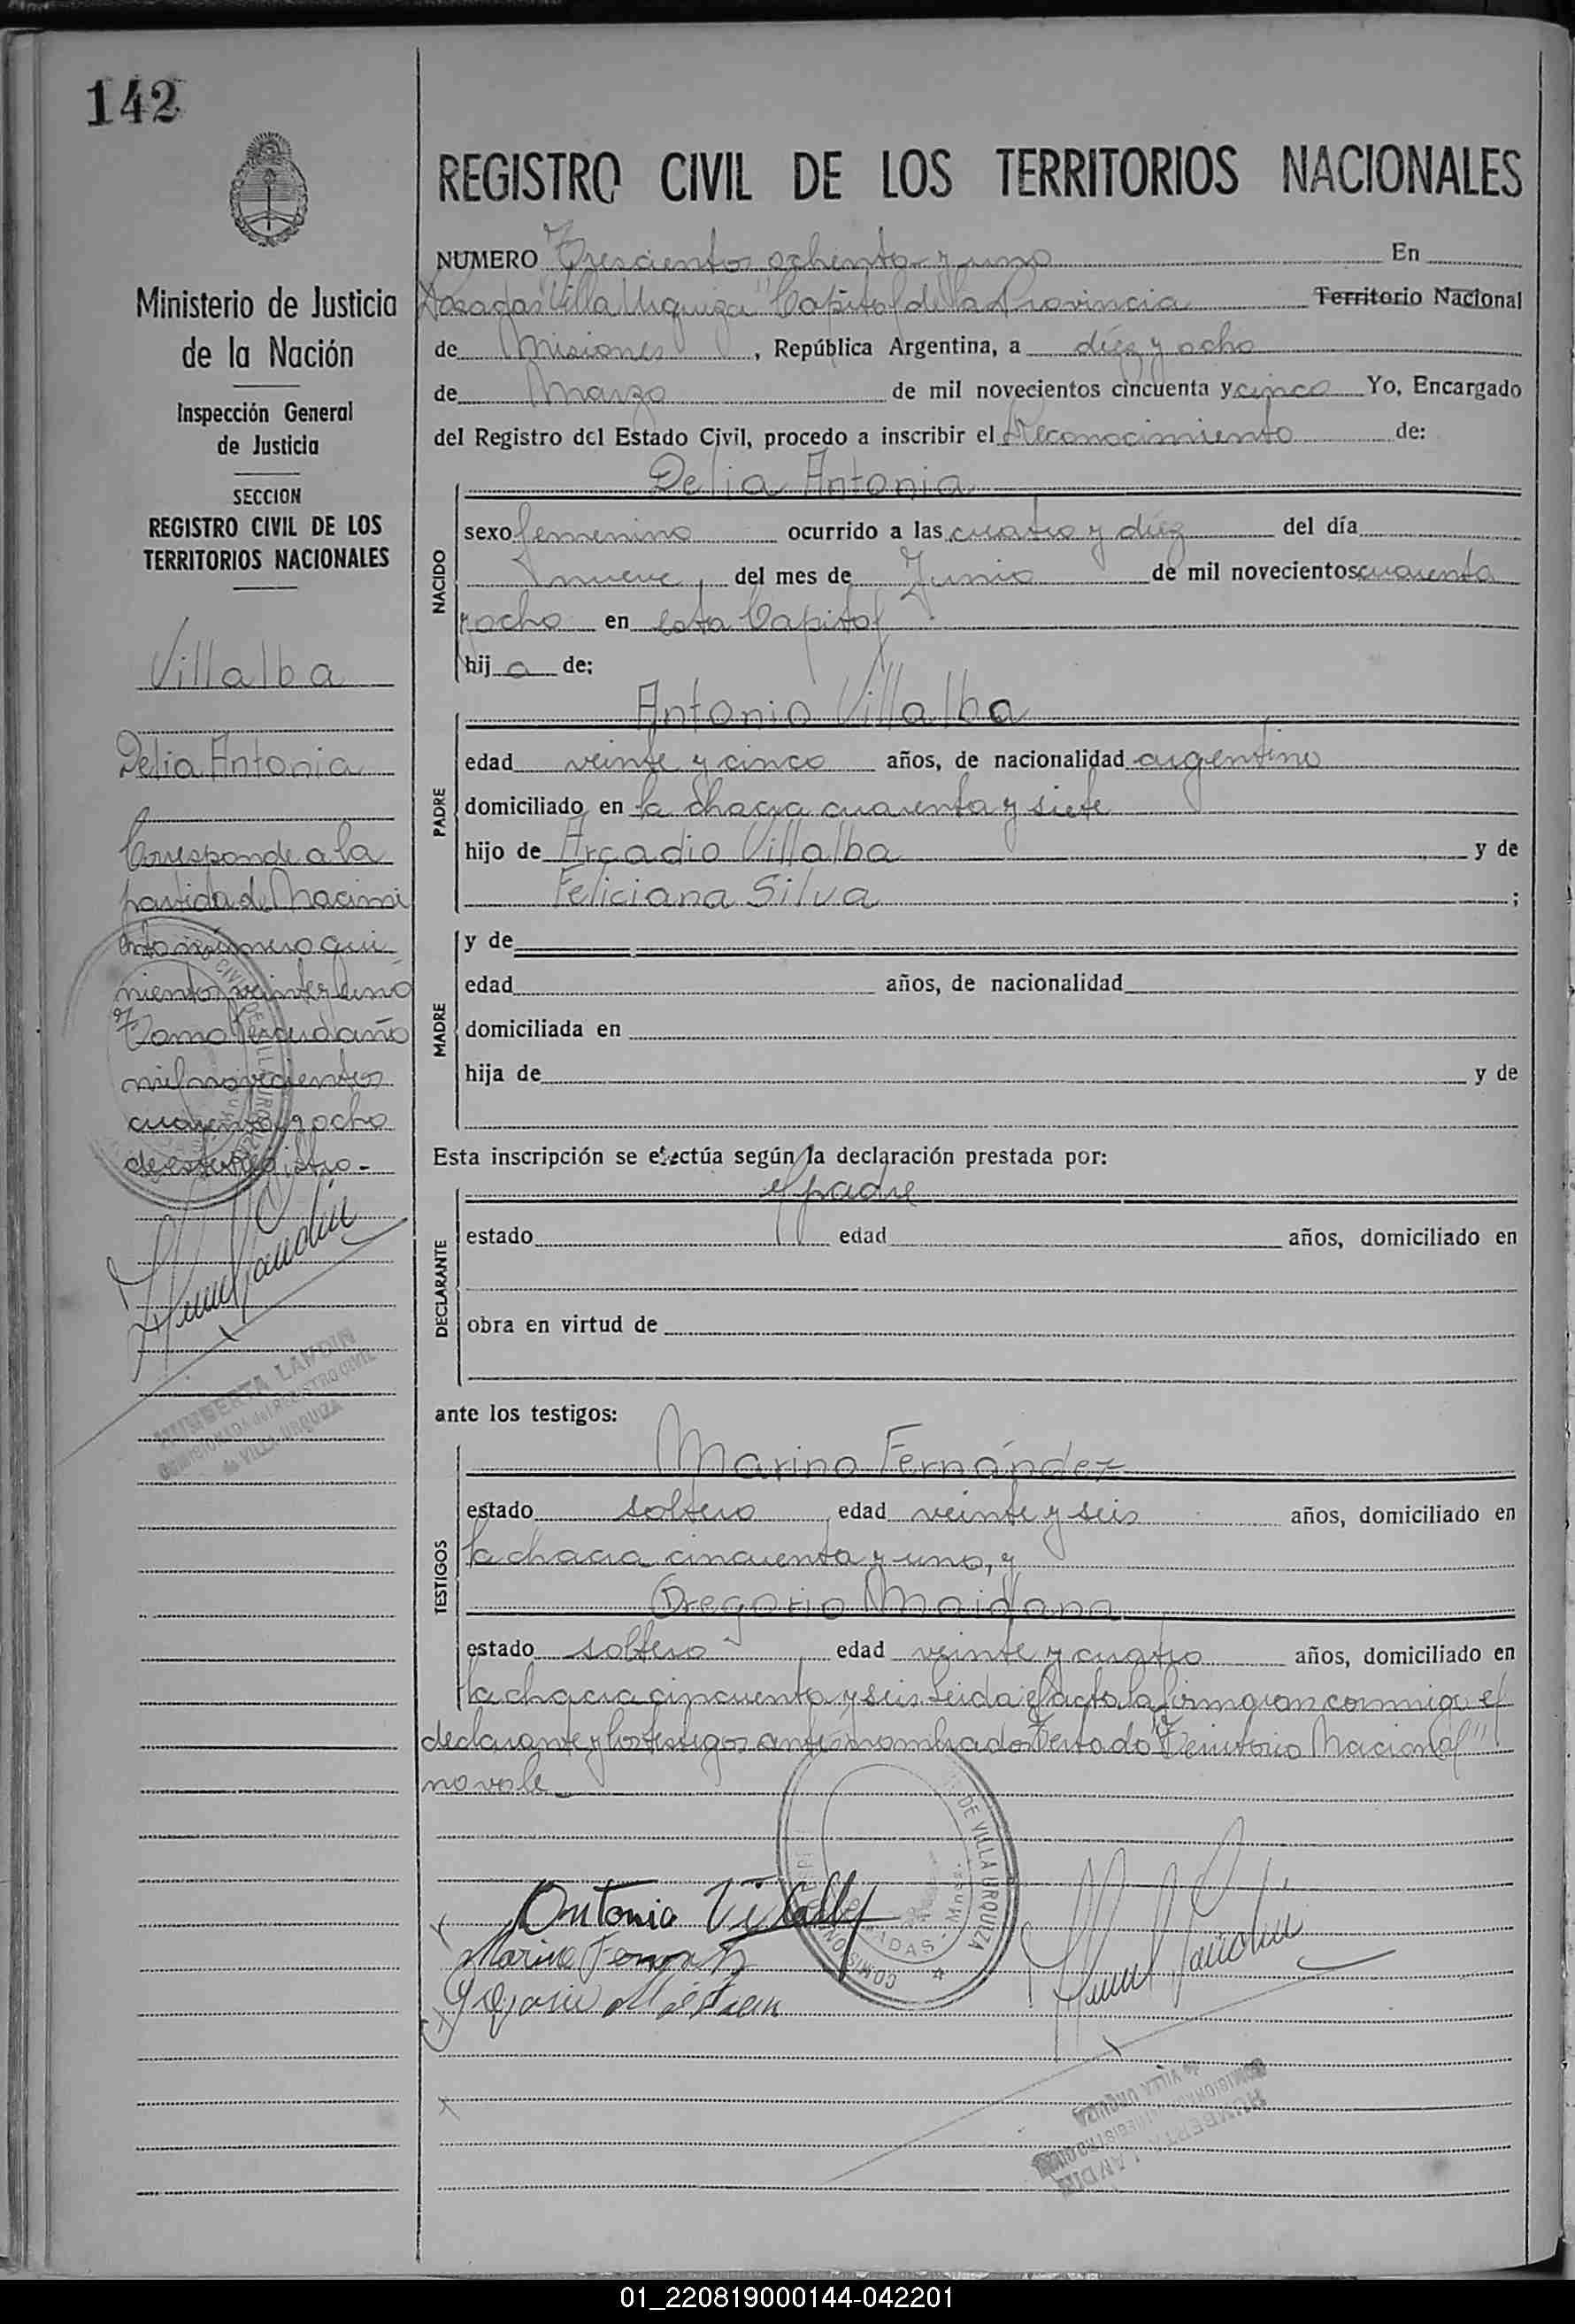 142
Ministerio de Justicia
de la Nación
Inspección General
de Justicia
SECCION
REGISTRO CIVIL DE LOS
TERRITORIOS NACIONALES
Villalba
Delia Antonia
Corresponde a la
partida de Nacimi
ento número qui
nientos veinte y uno
Tomo año
mil novecientos
cuarenta y ocho
de este Registro.-
HUMBERTA LANDIN
COMISIONADA del REGISTRO CIVIL
de VILLA URQUIZA
REGISTRO CIVIL DE LOS TERRITORIOS NACIONALES
NUMERO Trescientos ochenta y uno En
Posadas "Villa Urquiza" Capital de la Provincia Territorio Nacional
de Misiones, República Argentina, a diez y ocho
de Marzo de mil novecientos cincuenta y cinco Yo, Encargado
del Registro del Estado Civil, procedo a inscribir el Reconocimiento de:
Delia Antonia
NACIDO
sexo femenino ocurrido a las cuatro y diez del día
nueve, del mes de Junio de mil novecientos cuarenta
y ocho en esta Capital
hija de:
Antonio Villalba
PADRE
edad veinte y cinco años, de nacionalidad argentino
domiciliado en la chacra cuarenta y siete
hijo de Arcadio Villalba y de
Feliciana Silva ;
MADRE
y de
edad años, de nacionalidad
domiciliada en
hija de y de
Esta inscripción se efectúa según la declaración prestada por:
el padre
DECLARANTE
estado edad años, domiciliado en
obra en virtud de
ante los testigos:
Marino Fernández
TESTIGOS
estado soltero edad veinte y seis años, domiciliado en
la chacra cincuenta y uno, y
Gregorio Maidana
estado soltero edad veinte y cuatro años, domiciliado en
la chacra cincuenta y seis. Leida el acta la firmaron conmigo el
declarante y los testigos antes nombrados Testado "Territorio Nacional"
no vale
Antonio Villalba
Marino Fernandez
Gregorio Maidana
DE VILLA URQUIZA
POSADAS - Mnes.
HUMBERTA LANDIN
COMISIONADA del REGISTRO CIVIL
de VILLA URQUIZA
01_220819000144-042201